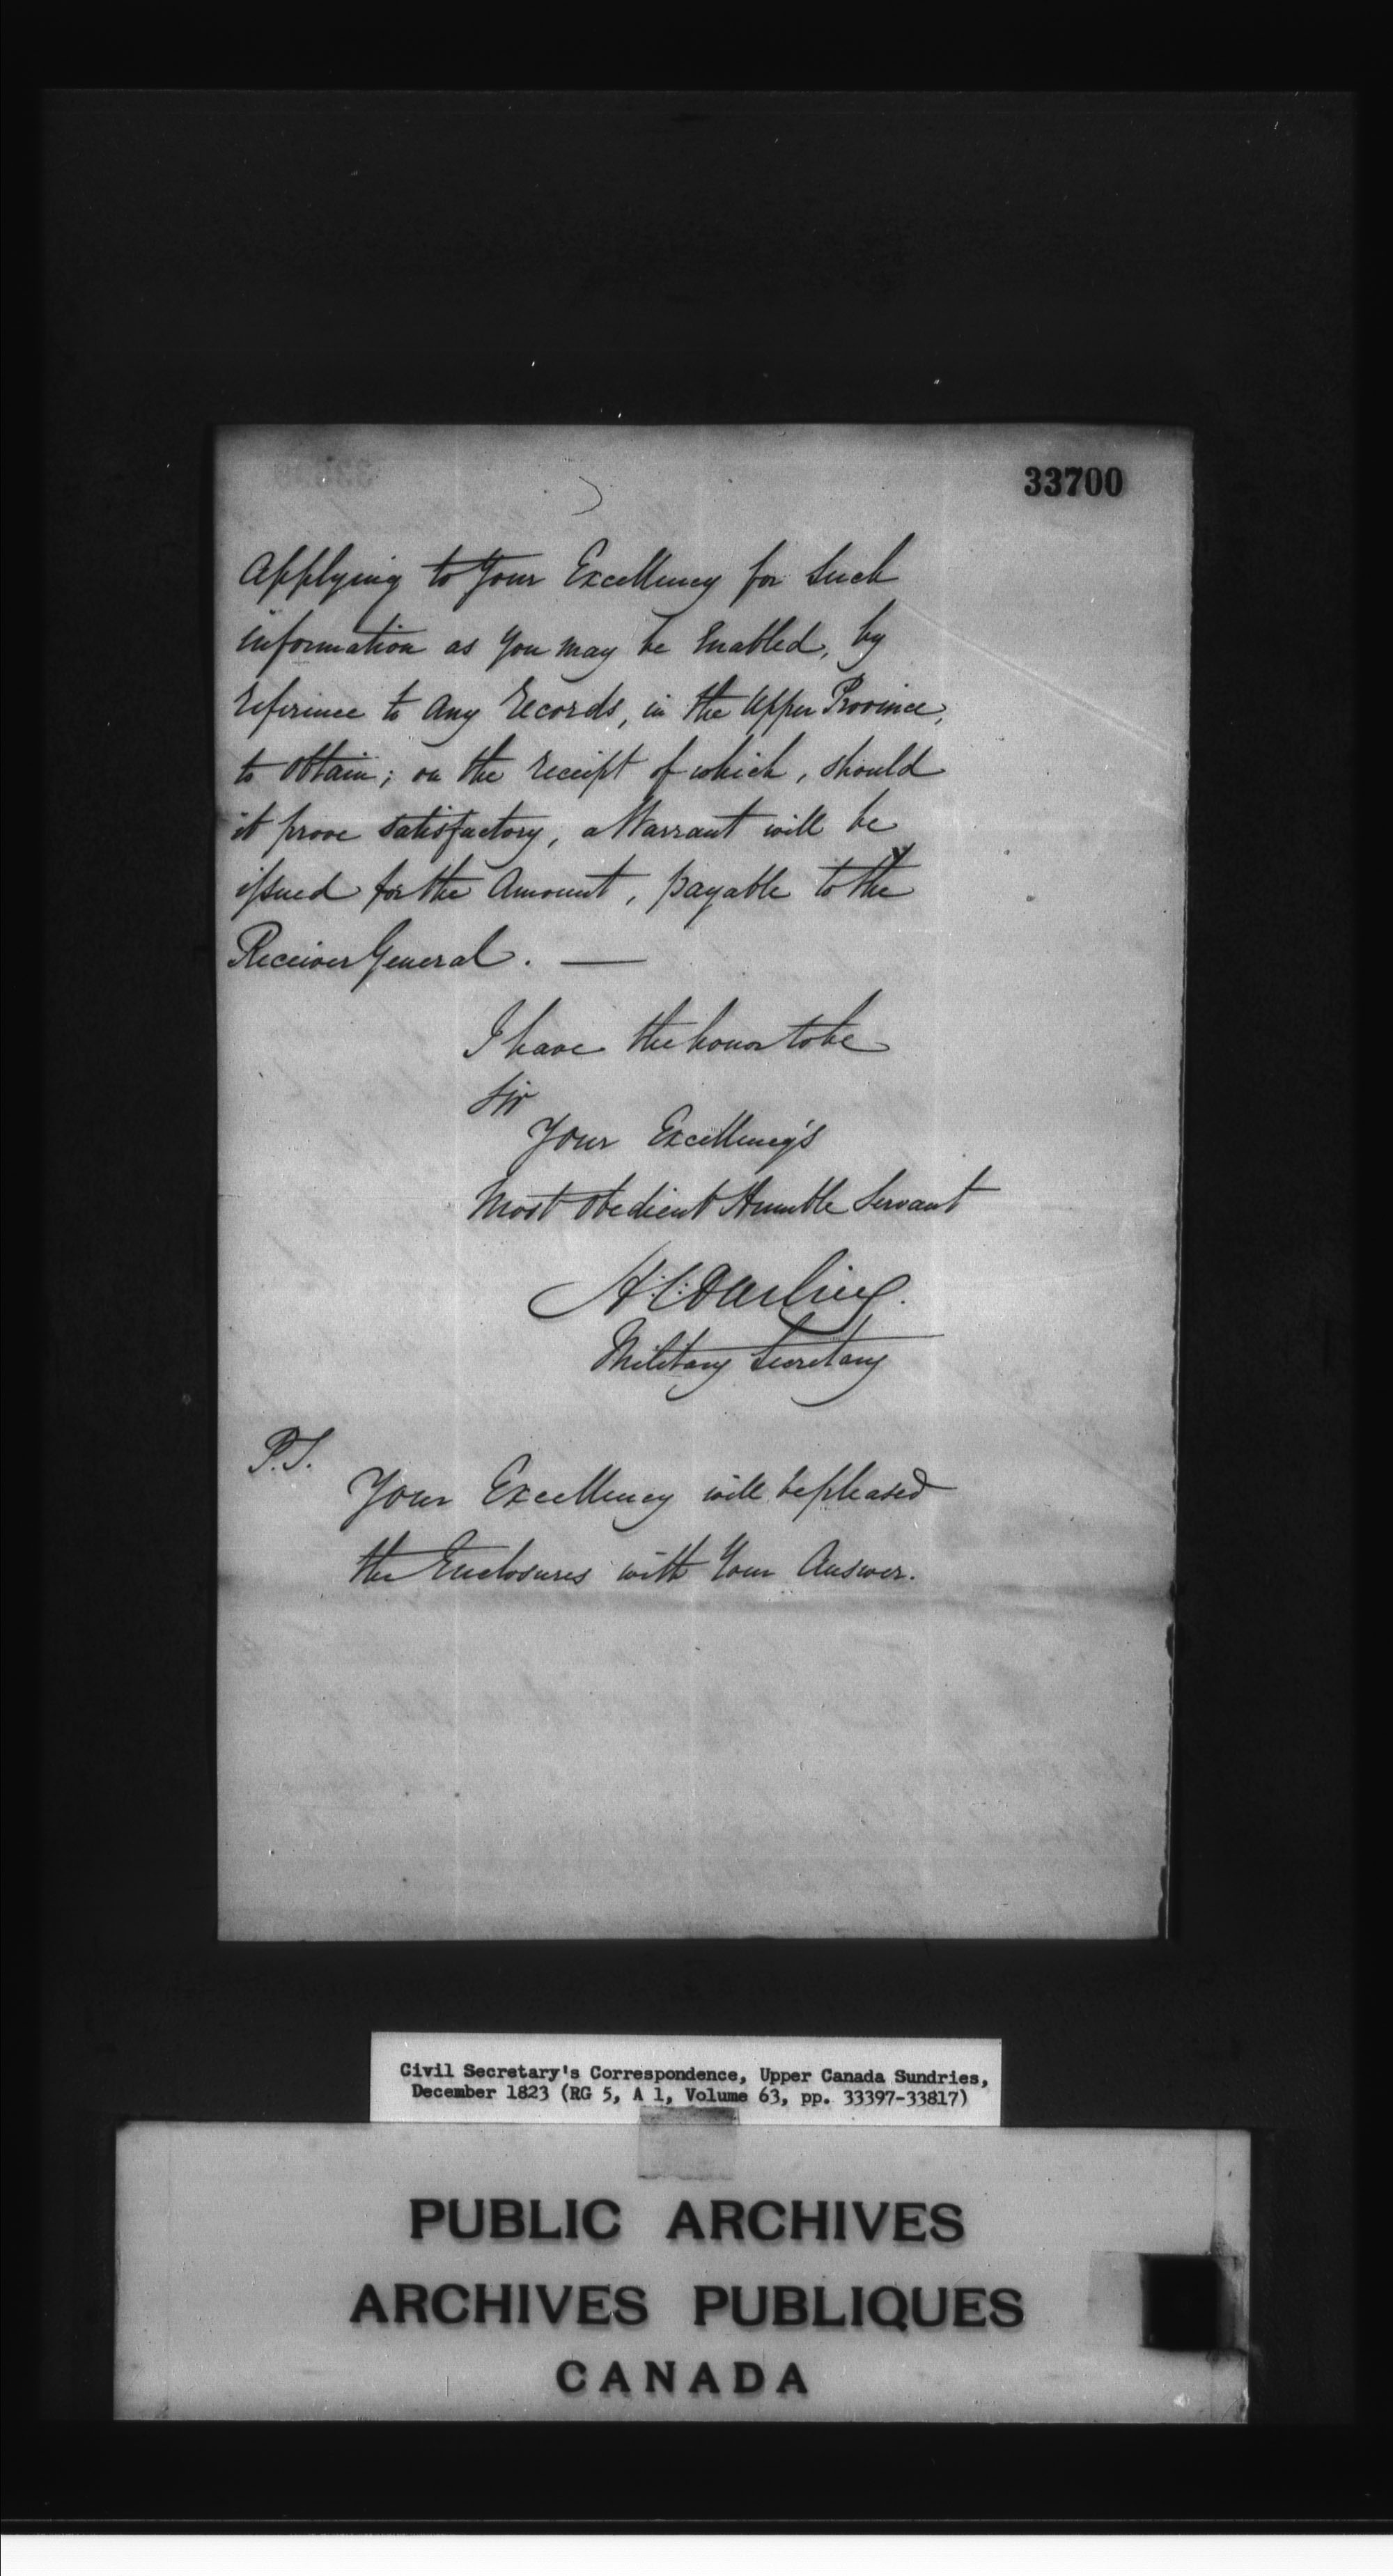 33700
Applying to Your Excellency for Such
information as You may be Enabled, by
reference to Any records, in the Upper Province,
to obtain; on the receipt of which, should
it prove satisfactory, a Warrant will be
issued for the Amount, payable to the
Receiver General. —
I have the honor to be
Sir
Your Excellency's
Most Obedient Humble Servant
H: C: Darling.
Military Secretary
P.S.
Your Excellency will be pleased
the Enclosures with Your Answer.
Civil Secretary's Correspondence, Upper Canada Sundries,
December 1823 (RG 5, A 1, Volume 63, pp. 33397-33817)
PUBLIC ARCHIVES
ARCHIVES PUBLIQUES
CANADA